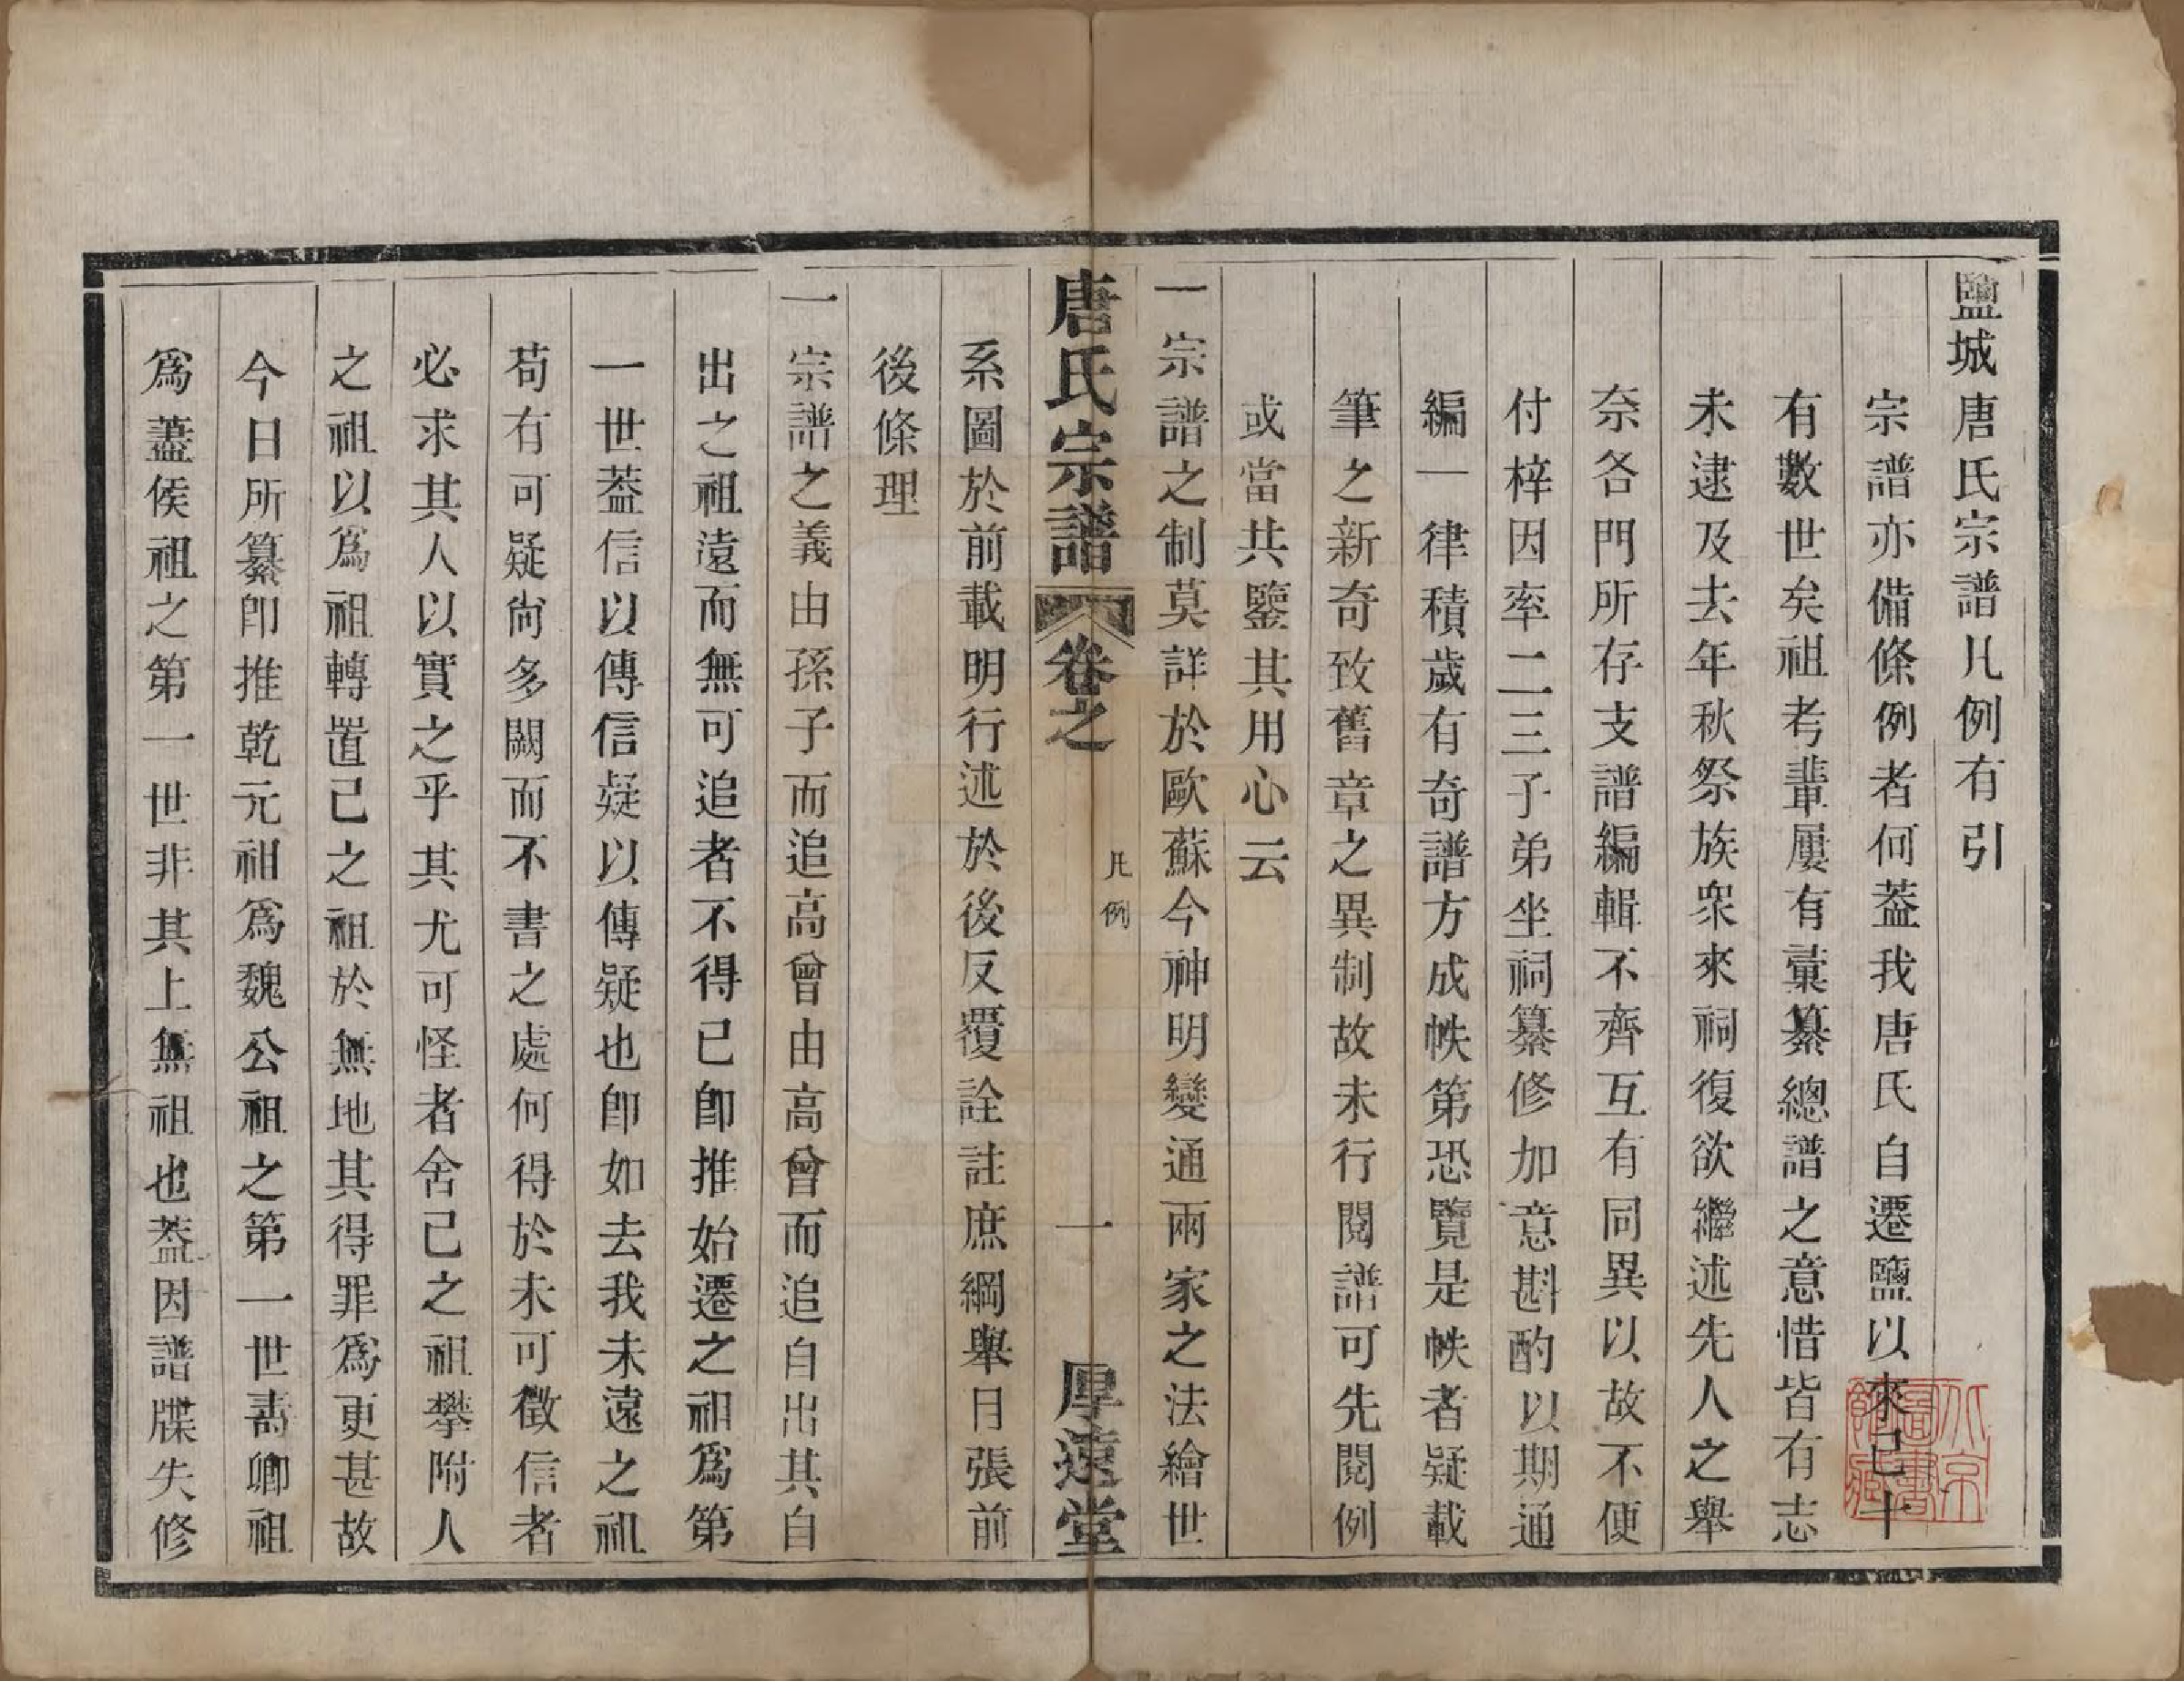 鹽城唐氏宗譜凡例有引
宗譜亦備條例者何葢我唐氏自遷鹽以來已十
有數世矣祖考輩屢有彙纂總譜之意惜皆有志
未逮及去年秋祭族衆來祠復欲繼述先人之舉
奈各門所存支譜編輯不齊互有同異以故不便
付梓因率二三子弟坐祠纂修加意斟酌以期通
編一律積歲有奇譜方成帙第恐覽是帙者疑載
筆之新奇致舊章之異制故未行閱譜可先閱例
或當共鑒其用心云
一宗譜之制莫詳於歐蘇今神明變通兩家之法繪世
唐氏宗譜 卷之 凡例 一 厚遠堂
系圖於前載明行述於後反覆詮註庶綱舉目張前
後條理
一宗譜之義由孫子而追高曾由高曾而追自出其自
出之祖遠而無可追者不得已卽推始遷之祖爲第
一世葢信以傳信疑以傳疑也卽如去我未遠之祖
苟有可疑尙多闕而不書之處何得於未可徵信者
必求其人以實之乎其尤可怪者舍己之祖攀附人
之祖以爲祖轉置己之祖於無地其得罪爲更甚故
今日所纂卽推乾元祖爲魏公祖之第一世壽卿祖
爲藎侯祖之第一世非其上無祖也葢因譜牒失修
北京圖書館藏